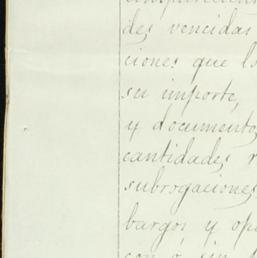 des vencidas
ciones que lo
su importe,
y documentos
cantidades r
subrogaciones
bargos y opo
con ó sin